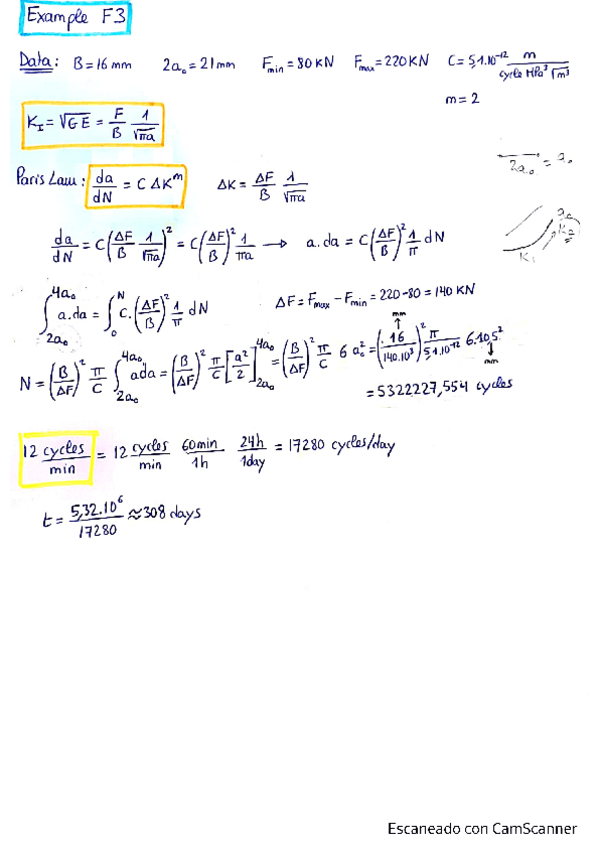 Example F3
Data: B=16 mm 2a₀=21mm Fmin=80KN Fmax=220KN C=5,1.10⁻¹² m / cycle MPa² √m³
m=2
K_I = √GE = F/B 1/√πa
Paris Law: da/dN = C ΔK^m ΔK = ΔF/B 1/√πa
2a₀ = a₀
da/dN = C(ΔF/B 1/√πa)² = C(ΔF/B)² 1/πa → a.da = C(ΔF/B)² 1/π dN
K₁
∫_{2a₀}^{4a₀} a.da = ∫_0^N C.(ΔF/B)² 1/π dN ΔF = Fmax − Fmin = 220-80 = 140 KN
N = (B/ΔF)² π/C ∫_{2a₀}^{4a₀} ada = (B/ΔF)² π/C [a²/2]_{2a₀}^{4a₀} = (B/ΔF)² π/C 6 a₀² = (16/140.10³)² π/5,1.10⁻¹² 6.10,5²
mm
mm
= 5322227,554 cycles
12 cycles/min = 12 cycles/min 60min/1h 24h/1day = 17280 cycles/day
t = 5,32.10⁶/17280 ≈ 308 days
Escaneado con CamScanner